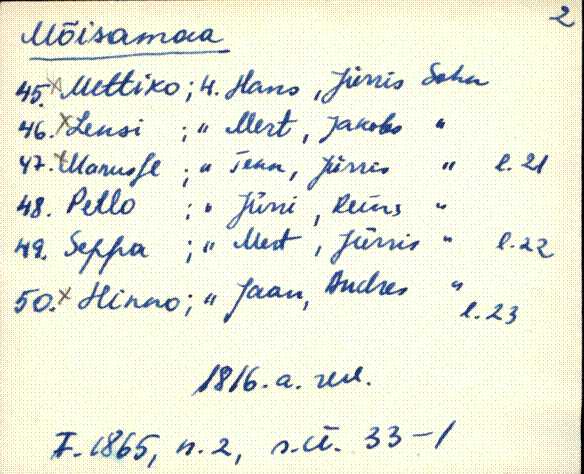 2
Mõisamaa
45. x Mettiko; W. Hans, Jürris Sohn
46. x Lensi ; " Mert, Jakobs "
47. x Manusse ; " Tenn, Jürris " l. 21
48. Pello ; " Jürri, Reins "
49. Seppa ; " Mert, Jürris " l. 22
50. x Hinno; " Jaan, Andres "
l. 23
1816. a. rev.
F. 1865, n. 2, s.ü. 33-1